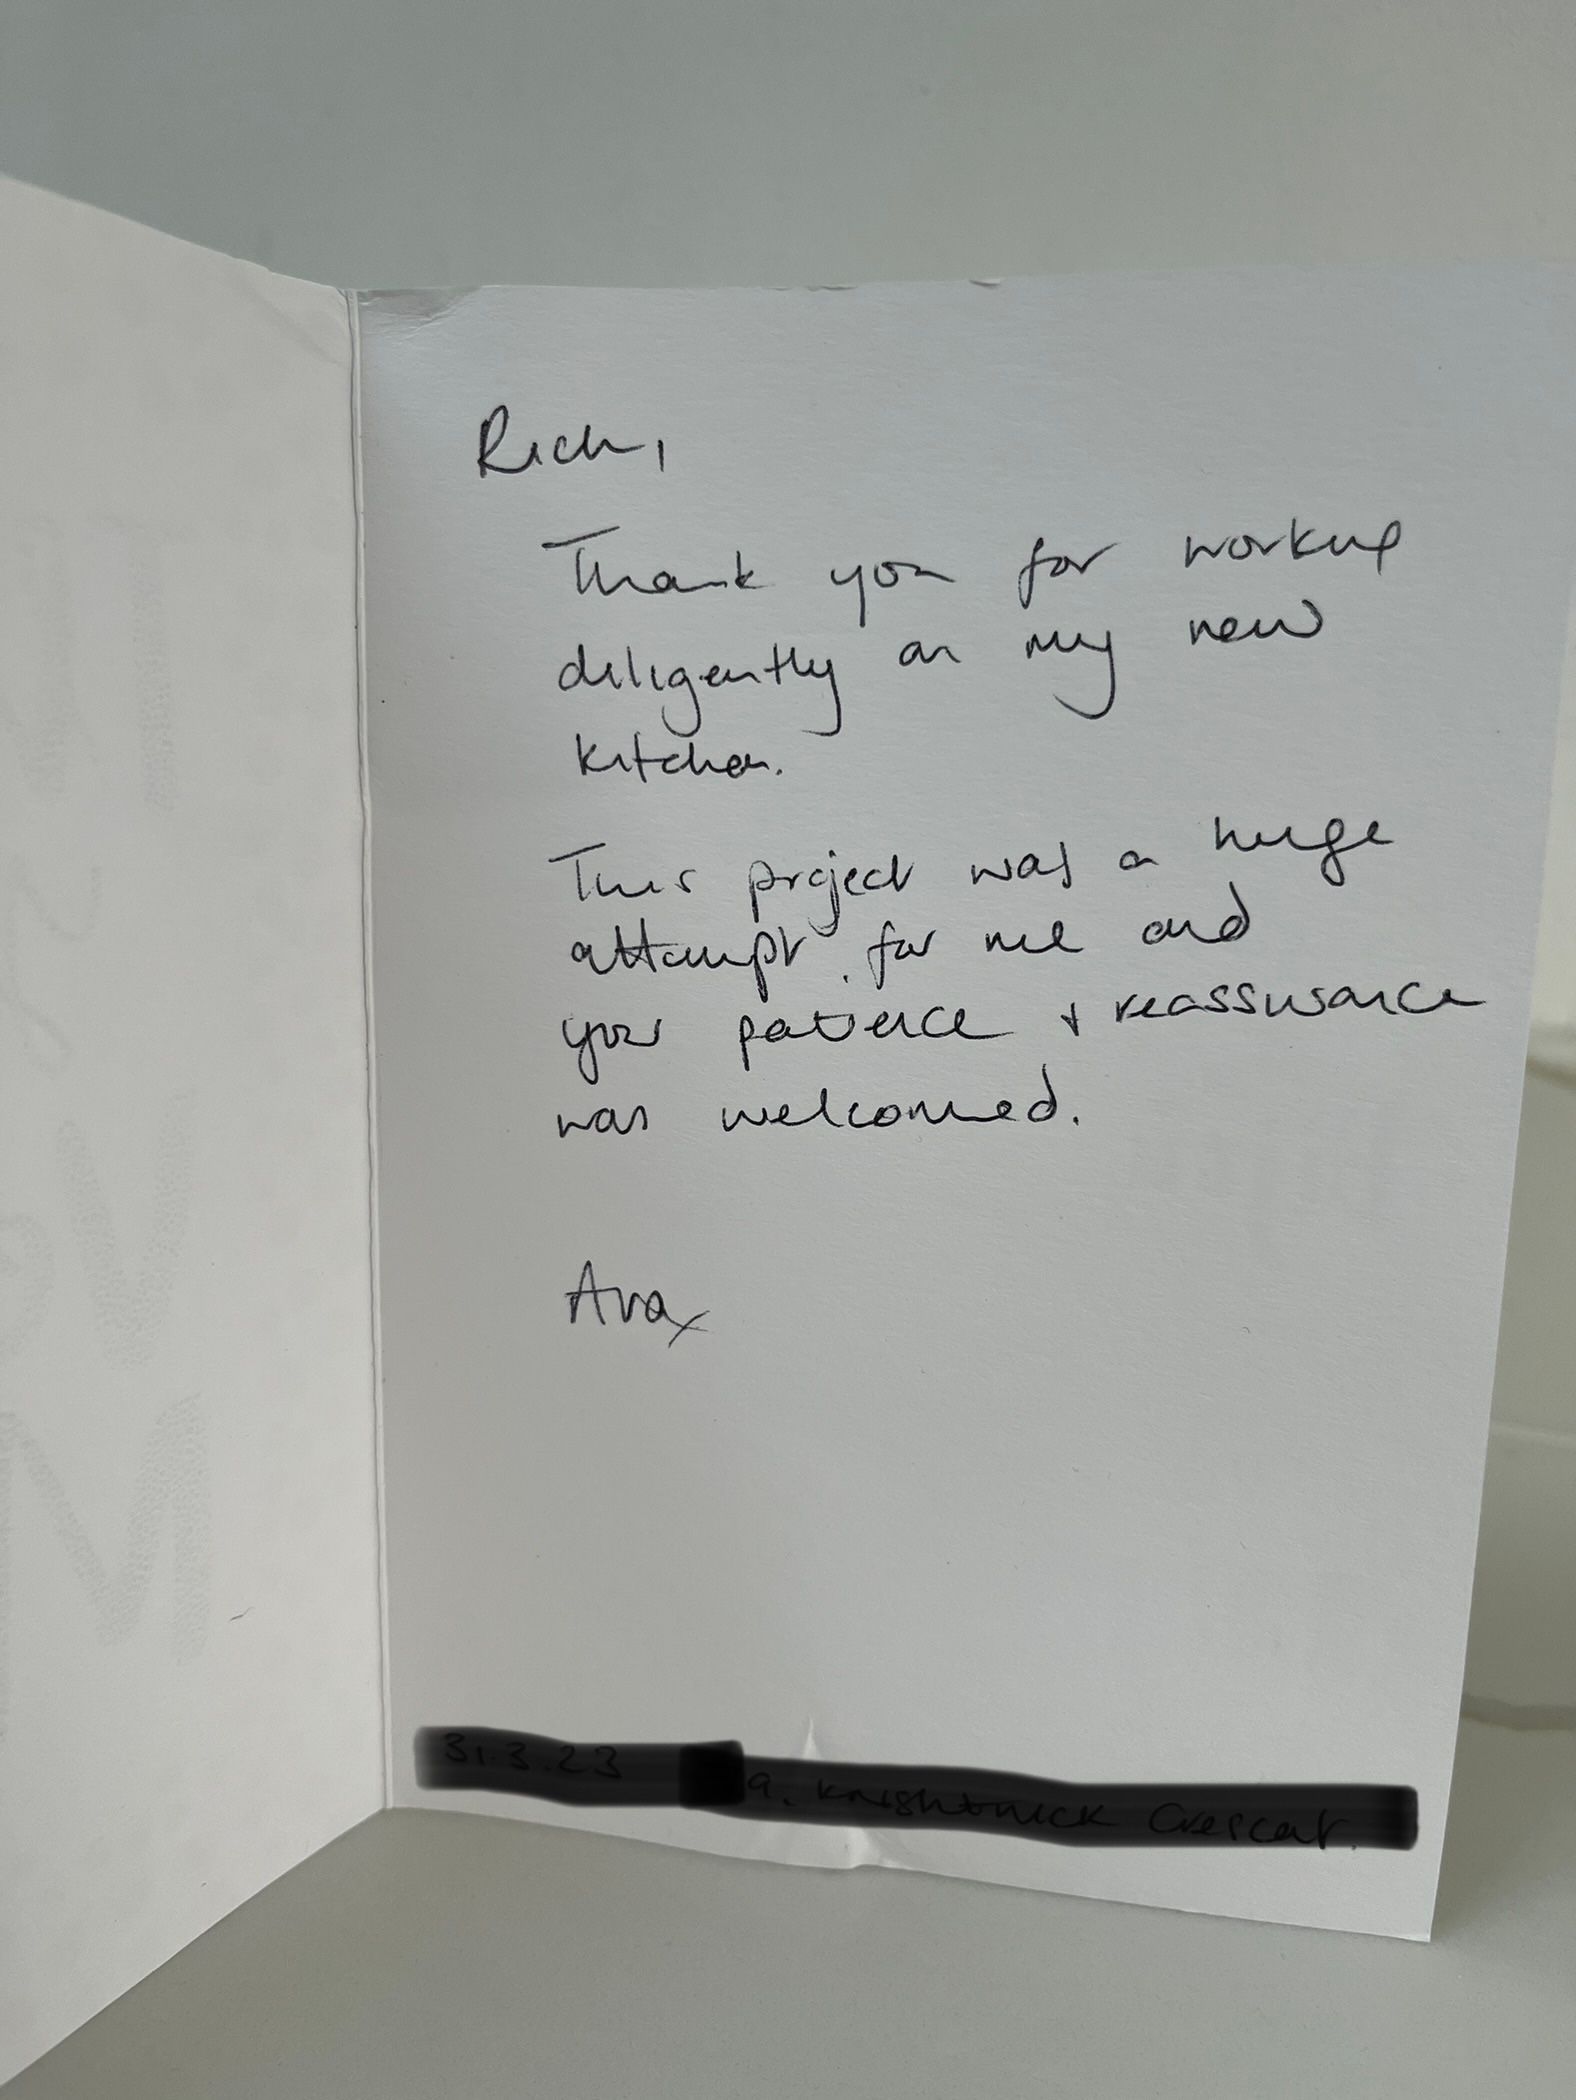 Rich,
Thank you for working
diligently on my new
kitchen.
This project was a huge
attempt for me and
your patience + reassurance
was welcomed.
Ava x